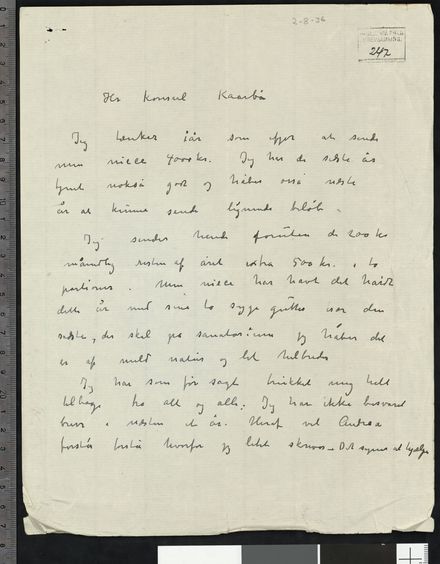 2-8-36
242
Hr Konsul Kaarbö
Jeg tænker iår som ifjor at sende
min niece 4000 kr. Jeg har de siste års
tjent nokså godt og håber også næste
år at kunne sende lignende beløb.
Jeg sender hende foruten de 200 kr
månedlig resten af året extra 500 kr. i to
portioner. Min niece har havt det hårdt
dette år med sine to syge gutter især den
sidste, der skal på sanatorium jeg håber det
er af mild natur og let helbredes
Jeg har som før sagt trukket mig helt
tilbage fra alt og alle; Jeg har ikke besvaret
brev i næsten et år. Herof vil Andrea
forstå forstå hvorfor jeg lidet skriver – Det synes at hjælpe